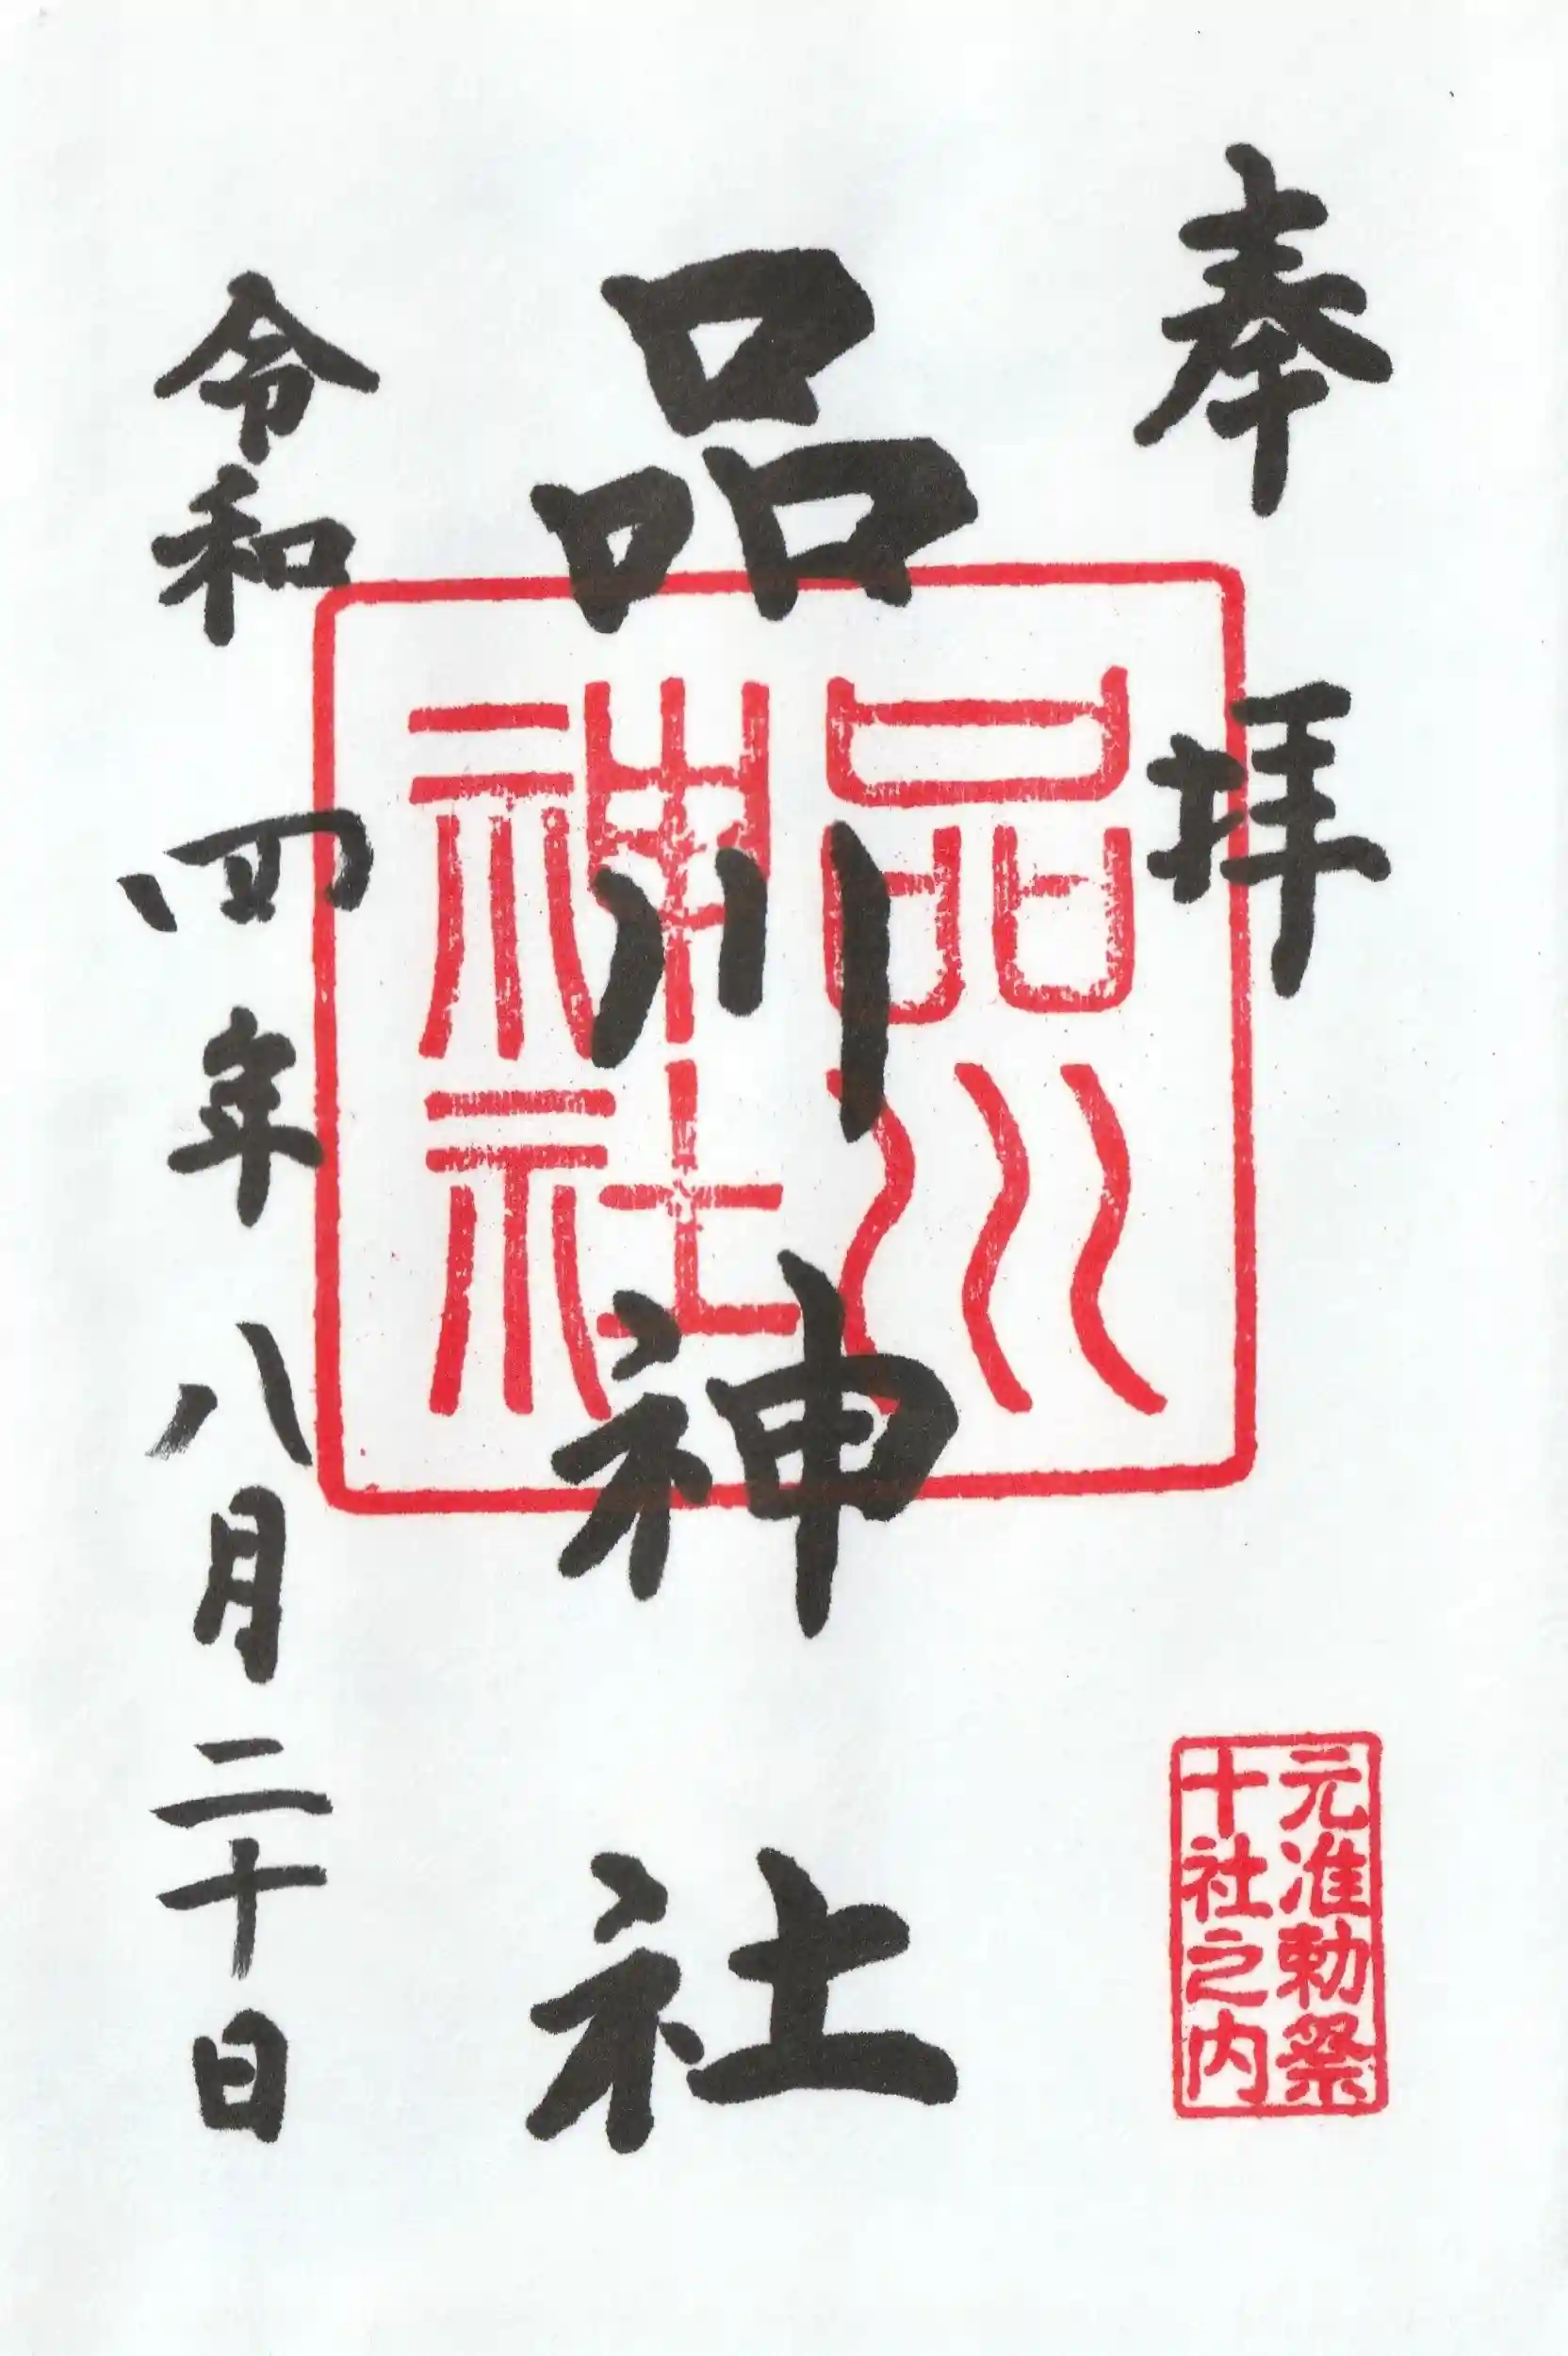 奉拝
元准勅祭
十社之内
品川神社
品川
神社
令和四年八月二十日